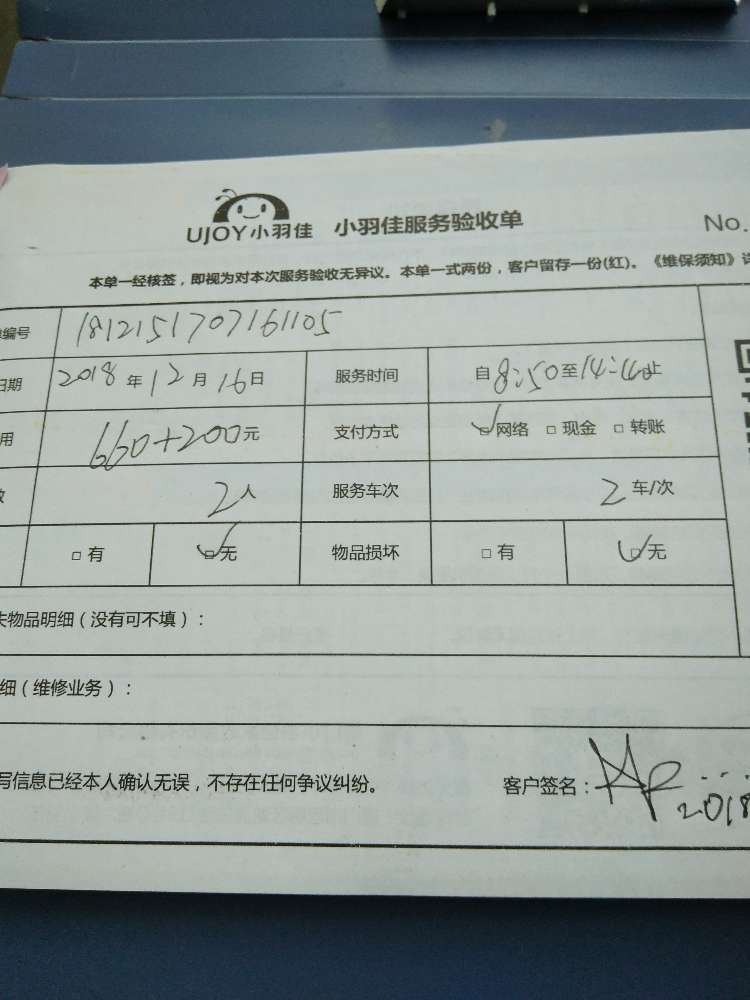 UJOY小羽佳 小羽佳服务验收单 No.
本单一经核签，即视为对本次服务验收无异议。本单一式两份，客户留存一份(红)。《维保须知》详
编号 1812151707161105
日期 2018年12月16日 服务时间 自8:50至14:40止
用 660+200元 支付方式 网络 现金 转账
数 2人 服务车次 2车/次
有 无 物品损坏 有 无
失物品明细（没有可不填）：
细（维修业务）：
写信息已经本人确认无误，不存在任何争议纠纷。 客户签名：
2018